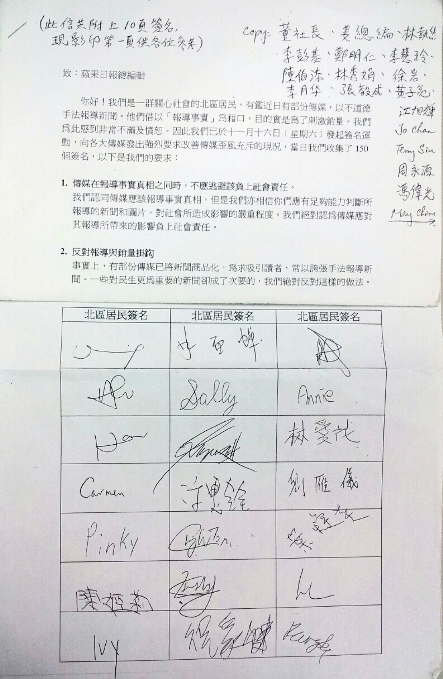 (此信共附上10頁簽名,
現影印第一頁供各位參考)
Copy: 董社長、姜總編、林
李彭基、鄭明仁、李慧玲
陳伯添、林秀娟、徐岩
李月华、張敏成、黃
江旭輝
Jo Chan
Temy Siu
周永源
馮偉光
May Chan
致：蘋果日報總編輯
你好！我們是一群關心社會的北區居民，有鑑近日有部份傳媒，以不道德
手法報導新聞。他們借以「報導事實」為藉口，目的實是為了刺激銷量。我們
為此感到非常不滿及憤怒。因此我們已於十一月十六日（星期六）發起簽名運
動，向各大傳媒發出強烈要求改善傳媒歪風充斥的現況，當日我們收集了 150
個簽名，以下是我們的要求：
1. 傳媒在報導事實真相之同時，不應逃避該負上社會責任。
我們認同傳媒應該報導事實真相，但是我們亦相信你們應有足夠能力判斷所
報導的新聞和圖片，對社會所造成影響的嚴重程度。我們絕對認為傳媒應對
其報導所帶來的影響負上社會責任。
2. 反對報導與銷量掛鈎
事實上，有部份傳媒已將新聞商品化，為求吸引讀者，常以誇張手法報導新
聞。一些對民生更為重要的新聞卻成了次要的，我們絕對反對這樣的做法。
北區居民簽名 北區居民簽名 北區居民簽名
Sally Annie
林愛
Carmen 劉雁儀
Pinky
陳
Ivy